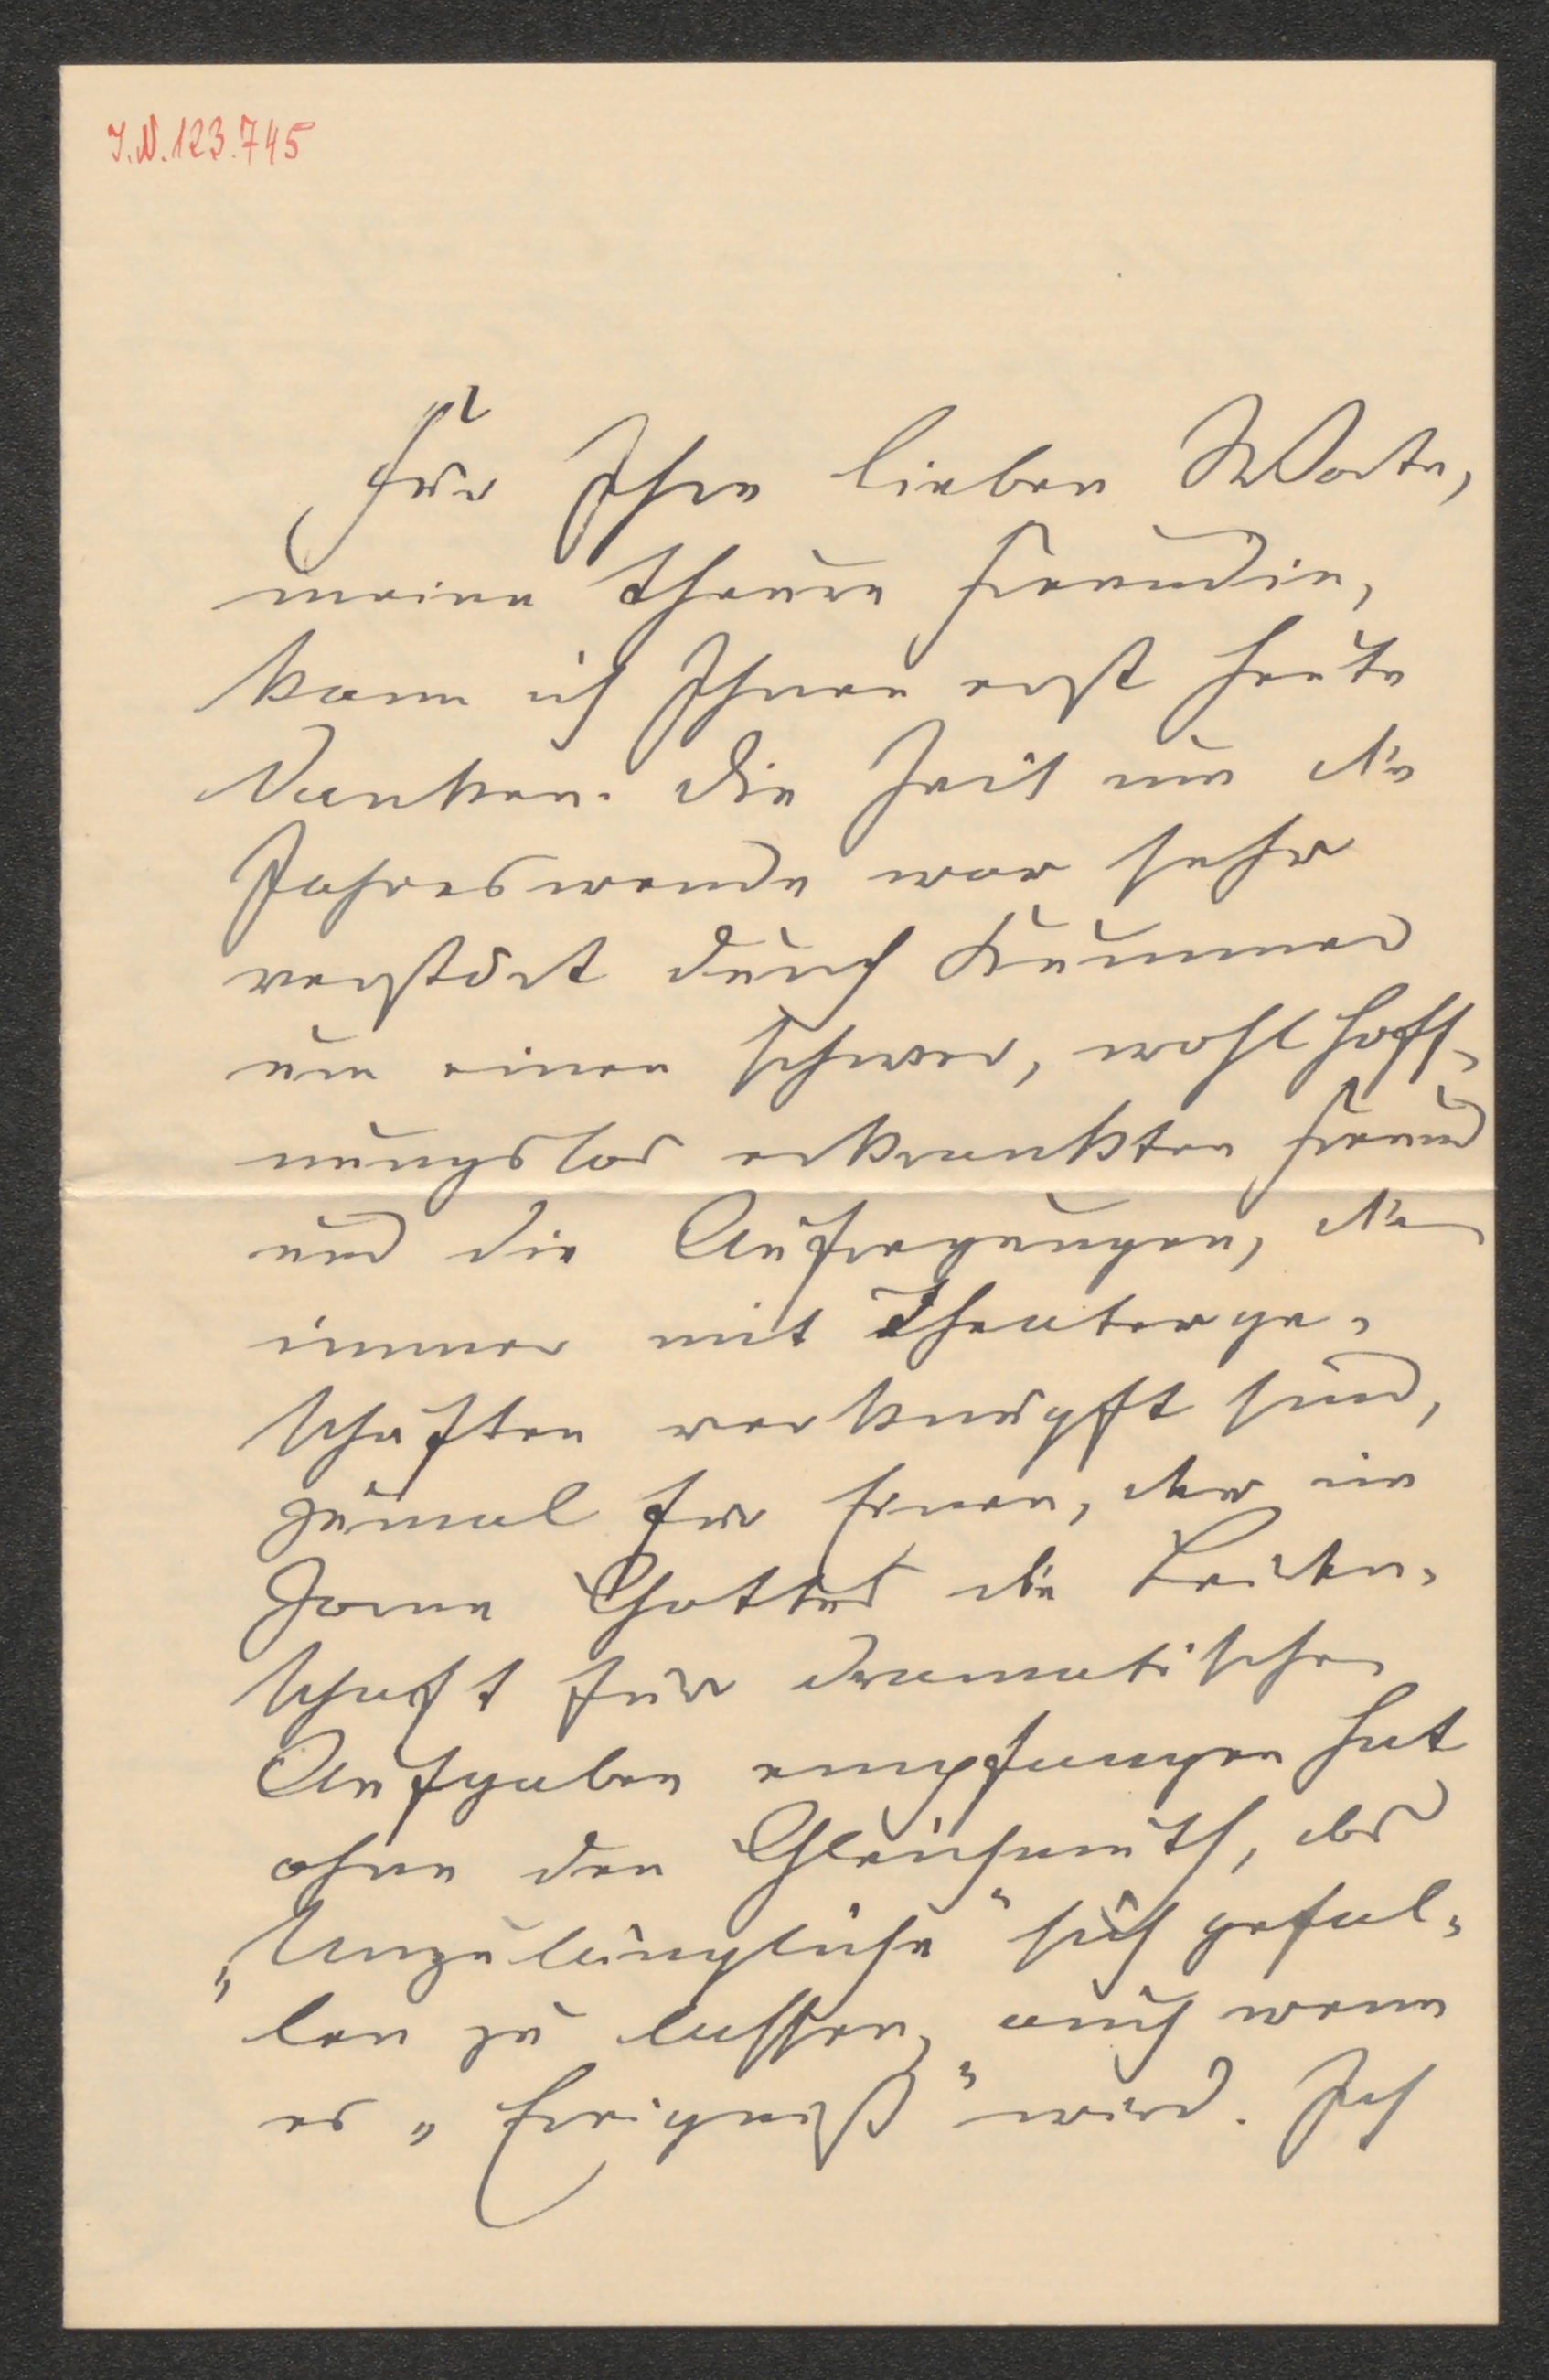 I.N. 123.745
Für Ihre lieben Worte,
meine theure Freundin,
kann ich Ihnen erst heute
danken. Die Zeit um die
Jahreswende war sehr
verstört durch Kummer
um einen schwer, wohl hoff-
nungslos erkrankten Freund
und die Aufregungen, die
immer mit Theaterge-
schäften verknüpft sind,
zumal für Einen, der im
Zorne Gottes die Leiden-
schaft für dramatische
Aufgaben empfangen hat
ohne den Gleichmuth, das
„Unzulängliche“ sich gefal-
len zu lassen, auch wenn
es „Ereigniß“ wird. Ich